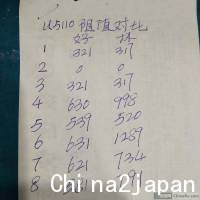 U5110阻值对比
好 坏
1 321 317
2 0 0
3 321 317
4 630 998
5 539 520
6 631 1289
7 621 734
8
China2japan